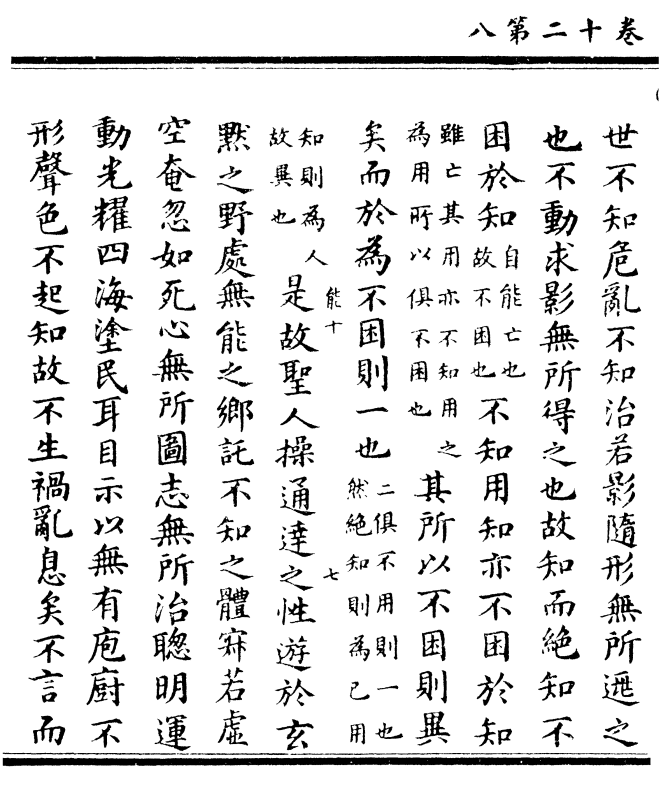 卷十二第八
世不知危亂不知治若影隨形無所遯之
也不動求影無所得之也故知而絕知不
困於知自能亡也故不困也不知用知亦不困於知
雖亡其用亦不知用之為用所以俱不困也其所以不困則異
矣而於為不困則一也二俱不用則一也然絕知則為己用
知則為人故異也能十是故聖人操通達之性遊於玄七
默之野處無能之鄉託不知之體寂若虛
空奄忽如死心無所圖志無所治聰明運
動光耀四海塗民耳目示以無有庖廚不
形聲色不起知故不生禍亂息矣不言而